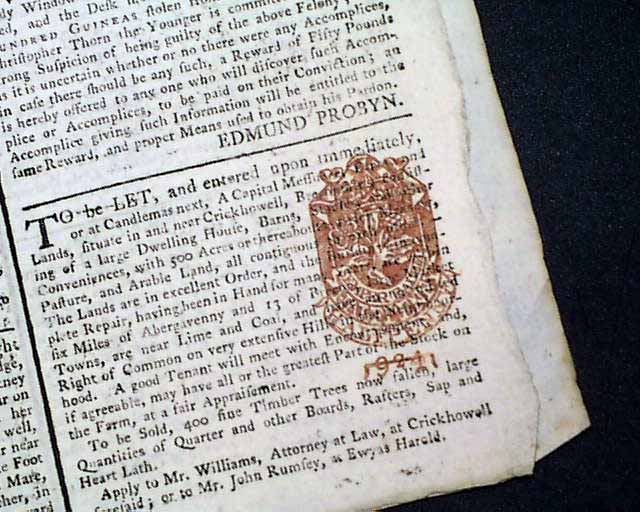 ly Window
ed, and the Desk
UNDRED GUINEAS stolen from
hristopher Thorn the Younger is committed
rong Suspicion of being guilty of the above Felony;
as it is uncertain whether or no there were any Accomplices,
in case there should be any such, a Reward of Fifty Pounds
is hereby offered to any one who will discover such Accom-
plice or Accomplices, to be paid on their Conviction; an
Accomplice giving such Information will be entitled to the
same Reward, and proper Means used to obtain his Pardon.
EDMUND PROBYN.
TO be LET, and entered upon immediately,
or at Candlemas next, A Capital
Lands, situate in and near Crickhowell,
ing of a large Dwelling House, Barns,
Conveniences, with 500 Acres or thereabo
Pasture, and Arable Land, all contiguo
The Lands are in excellent Order, and the
plete Repair, having been in Hand for man
six Miles of Abergavenny and 13 of
Towns, are near Lime and Coal, and
Right of Common on very extensive Hills
hood. A good Tenant will meet with
if agreeable, may have all or the greatest Part of the Stock on
the Farm, at a fair Appraisement.
To be Sold, 400 fine Timber Trees now fallen, large
Quantities of Quarter and other Boards, Rafters, Sap and
Heart Lath.
Apply to Mr. Williams, Attorney at Law, at Crickhowell
foresaid; or to Mr. John Rumsey, at Ewyas Harold.
her
well,
near
Foot
Mare,
in